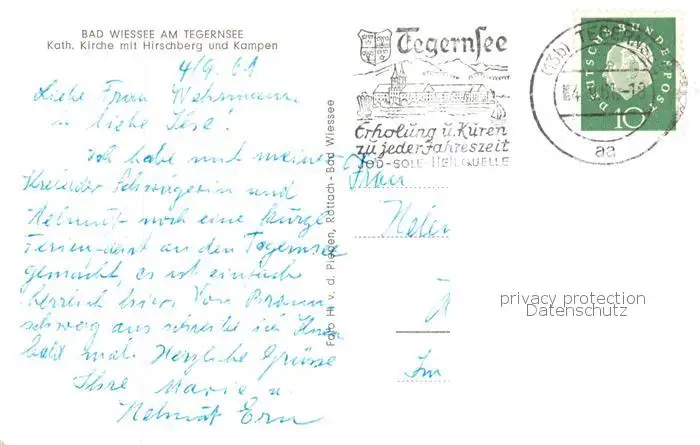 BAD WIESSEE AM TEGERNSEE
Kath. Kirche mit Hirschberg und Kampen
4/9. 61
Liebe Frau Wehrmann,
u liebe Ilse!
Ich habe mit meiner
Schwägerin und
Helmut noch eine kurze
Ferien an den Tegernsee
gemacht, es ist einfach
herrlich hier. Von Braun-
schweig aus schreibe ich Ihnen
bald mal. Herzliche Grüsse
Ihre Marie u.
Helmut Ern
Foto H. v. d. Piepen, Rottach - Bad Wiessee
Tegernsee
Erholung u. Kuren
zu jeder Jahreszeit
JOD-SOLE-HEILQUELLE
(13b) TEGERNSEE
aa
DEUTSCHE BUNDESPOST
10
Frau
Im
privacy protection
Datenschutz